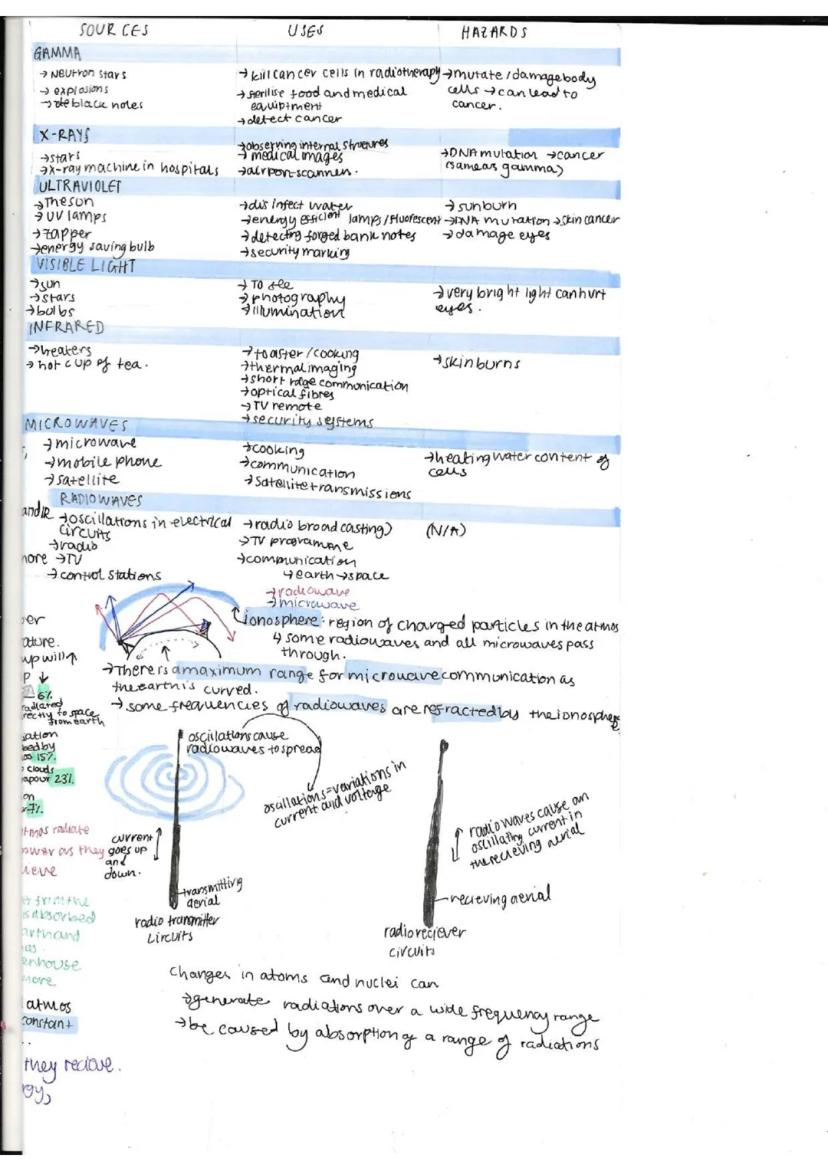 SOURCES USES HAZARDS
GAMMA
→ Neutron stars
→ explosions
→ black holes
→ kill cancer cells in radiotherapy
→ sterilise food and medical
equiptment
→ detect cancer
→ mutate/damage body
cells → can lead to
cancer.
X-RAYS
→ stars
→ x-ray machine in hospitals
→ observing internal structures
→ medical images
→ airport scanners.
→ DNA mutation → cancer
(same as gamma)
ULTRAVIOLET
→ The sun
→ UV lamps
→ zapper
→ energy saving bulb
→ disinfect water
→ energy efficient lamps/fluorescent
→ detecting forged bank notes
→ security marking
→ sunburn
→ DNA mutation → skin cancer
→ damage eyes
VISIBLE LIGHT
→ sun
→ stars
→ bulbs
→ To see
→ photography
→ illumination
→ very bright light can hurt
eyes.
INFRARED
→ heaters
→ hot cup of tea.
→ toaster/cooking
→ thermal imaging
→ short communication
→ optical fibres
→ TV remote
→ security systems
→ skin burns
MICROWAVES
→ microwave
→ mobile phone
→ satellite
→ cooking
→ communication
→ satellite transmissions
→ heating water content of
cells
RADIOWAVES
→ oscillations in electrical
circuits
→ radio
→ TV
→ control stations
→ radio broadcasting)
→ TV programme
→ communication
↳ earth → space
(N/A)
→ radiowave
→ microwave
ionosphere: region of charged particles in the atmos
↳ some radiowaves and all microwaves pass
through.
→ There is a maximum range for microwave communication as
the earth is curved.
→ some frequencies of radiowaves are refracted by the ionosphere
oscillations cause
radiowaves to spread
oscillations = variations in
current and voltage
current
goes up
and
down.
transmitting
aerial
radio tranmitter
circuits
radio waves cause an
oscillating current in
the recieving aerial
recieving aerial
radio reciever
circuits
changes in atoms and nuclei can
→ generate radiations over a wide frequency range
→ be caused by absorption of a range of radiations
and IR
more
up will ↑
P ↓
6%
to space
from earth
by
15%
clouds
23%
7%
atmos radiate
power as they
from the
absorbed
and
more
atmos
constant
they recieve.